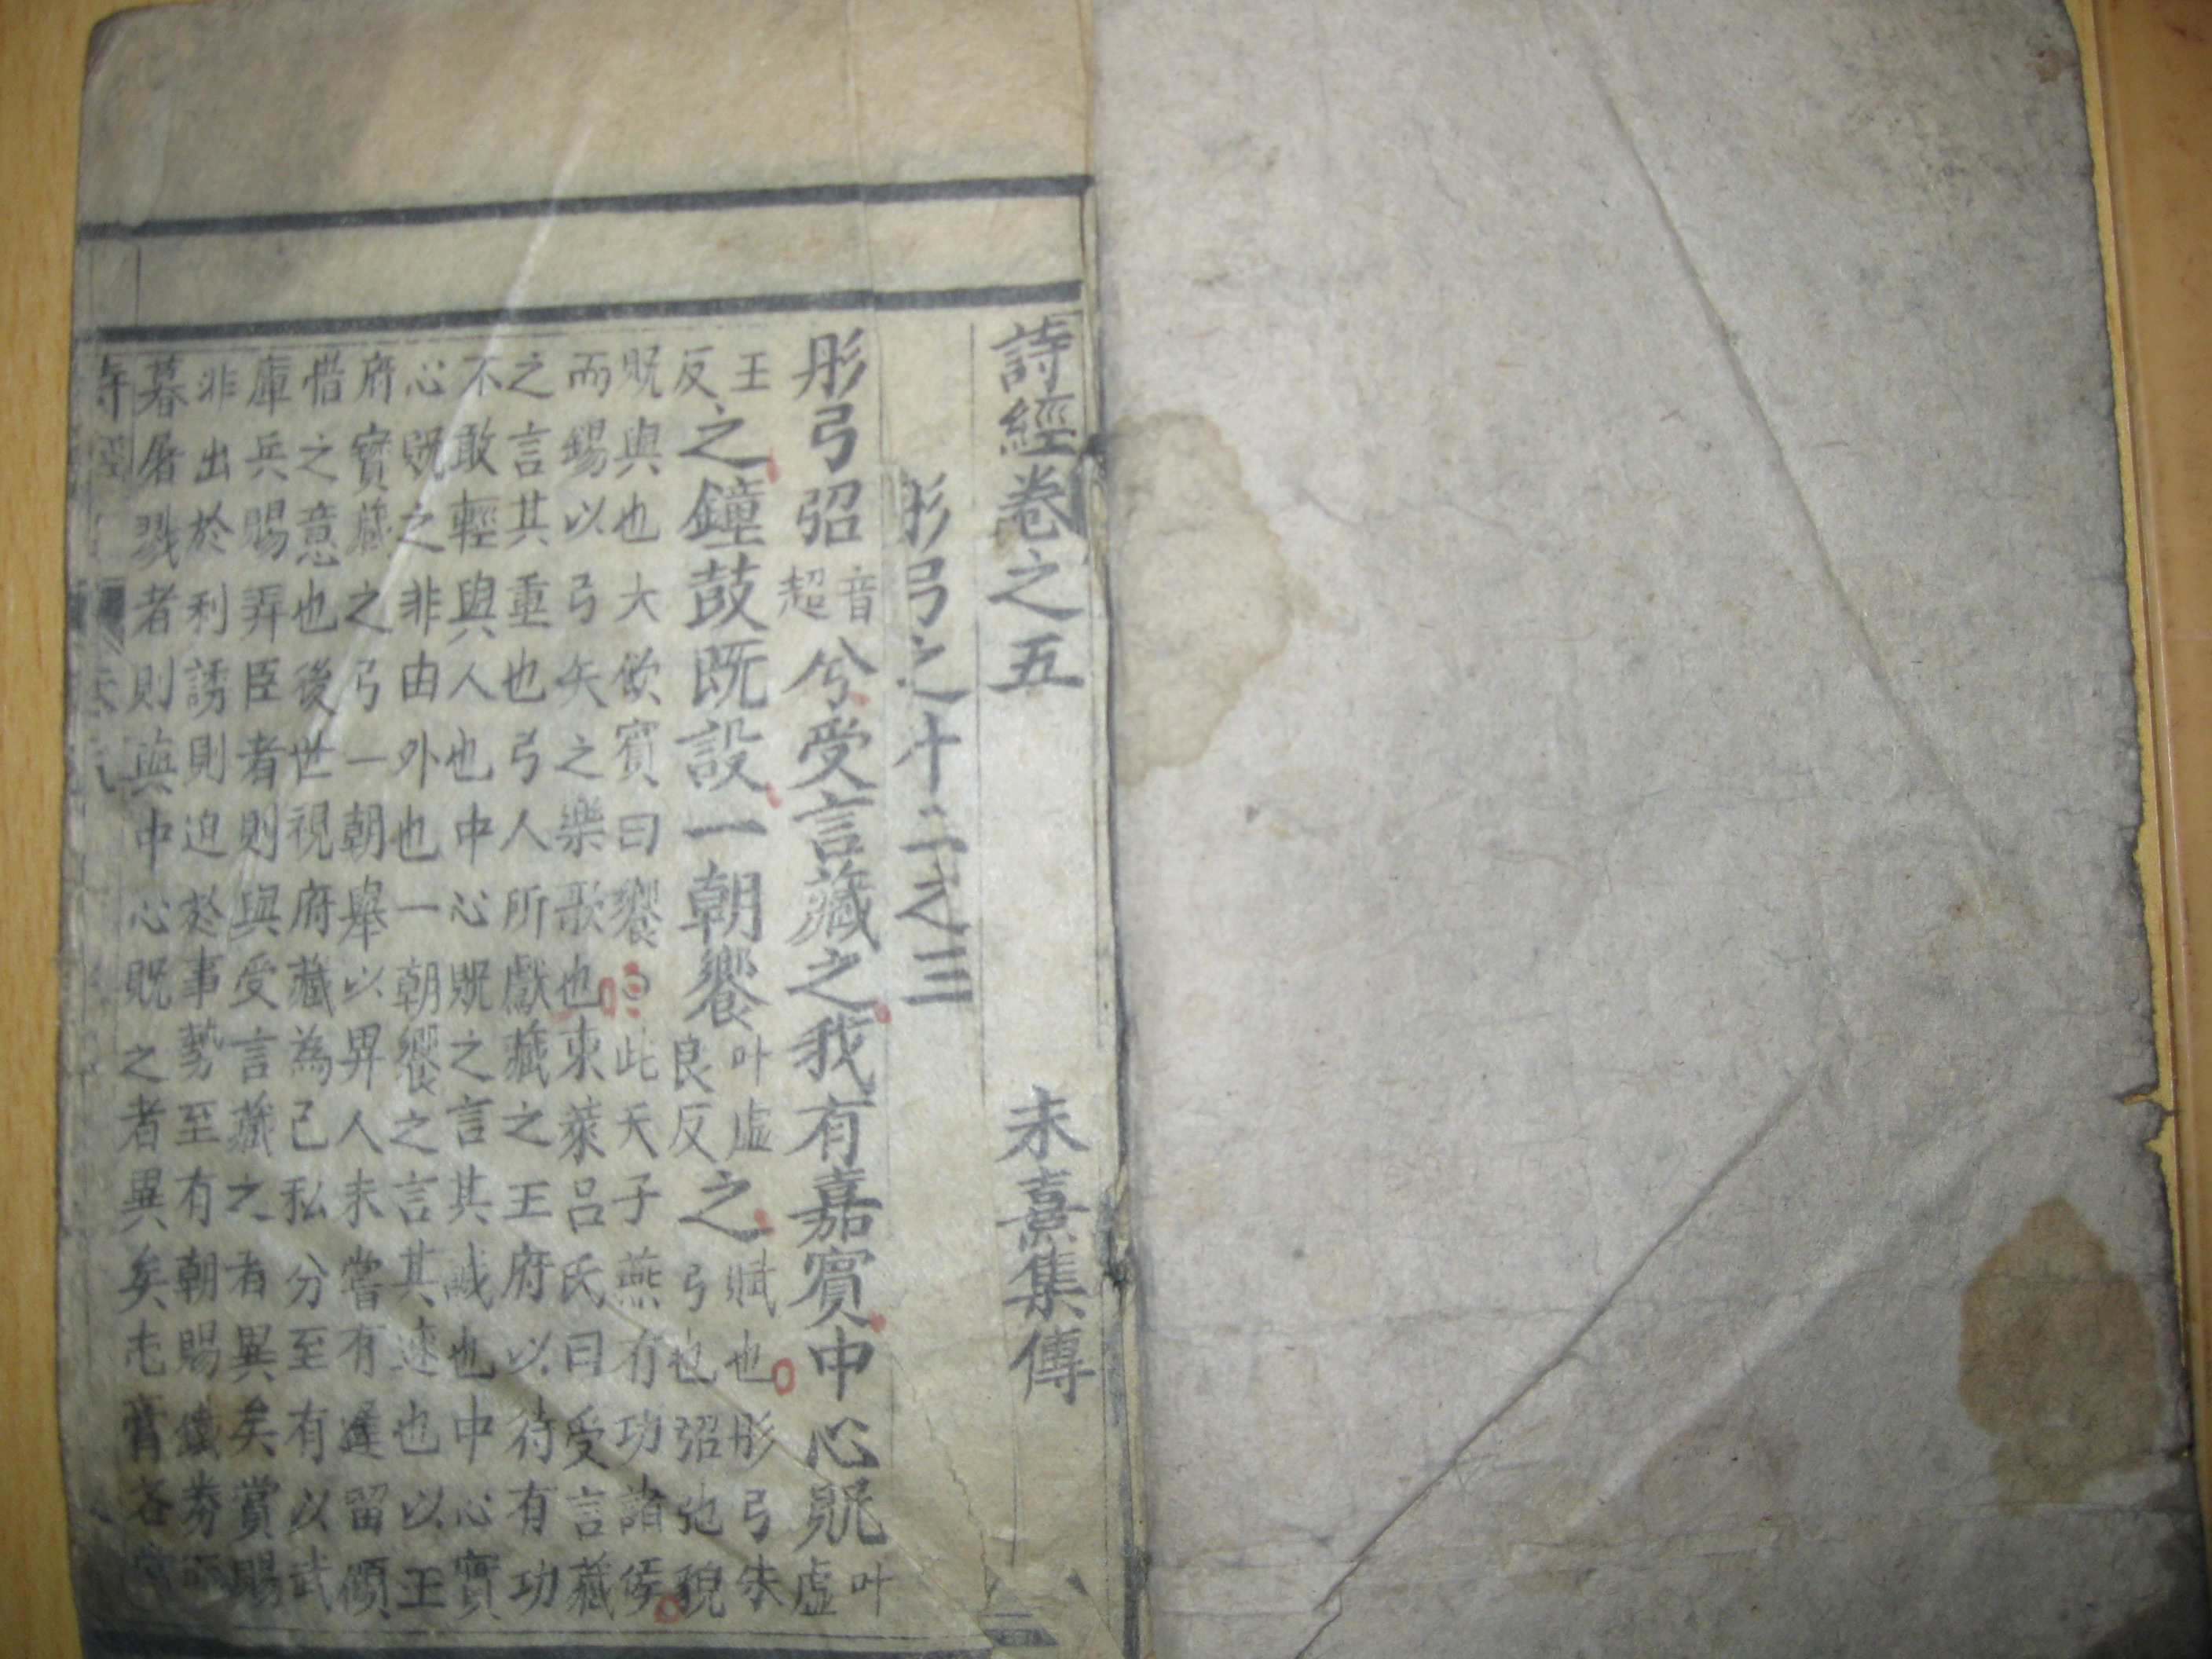 詩經卷之五　朱熹集傳
彤弓之什二之三
彤弓弨音超兮受言藏之我有嘉賓中心貺叶虛
王反之鐘鼓既設一朝饗叶虛良反之賦也彤弓朱弓也弨弛貌
貺與也大飲賓曰饗○此天子燕有功諸侯
而錫以弓矢之樂歌也東萊呂氏曰受言藏
之言其重也弓人所獻藏之王府以待有功
不敢輕與人也中心貺之言其誠也中心實
心貺之非由外也一朝饗之言其速也以王
府寶藏之弓一朝舉以畀人未嘗有遲留顧
惜之意也後世視府藏為己私分至有以武
庫兵賜弄臣者則與受言藏之者異矣賞賜
非出於利誘則迫於事勢至有朝賜鐵券而
暮屠戮者則與中心貺之者異矣屯膏吝賞